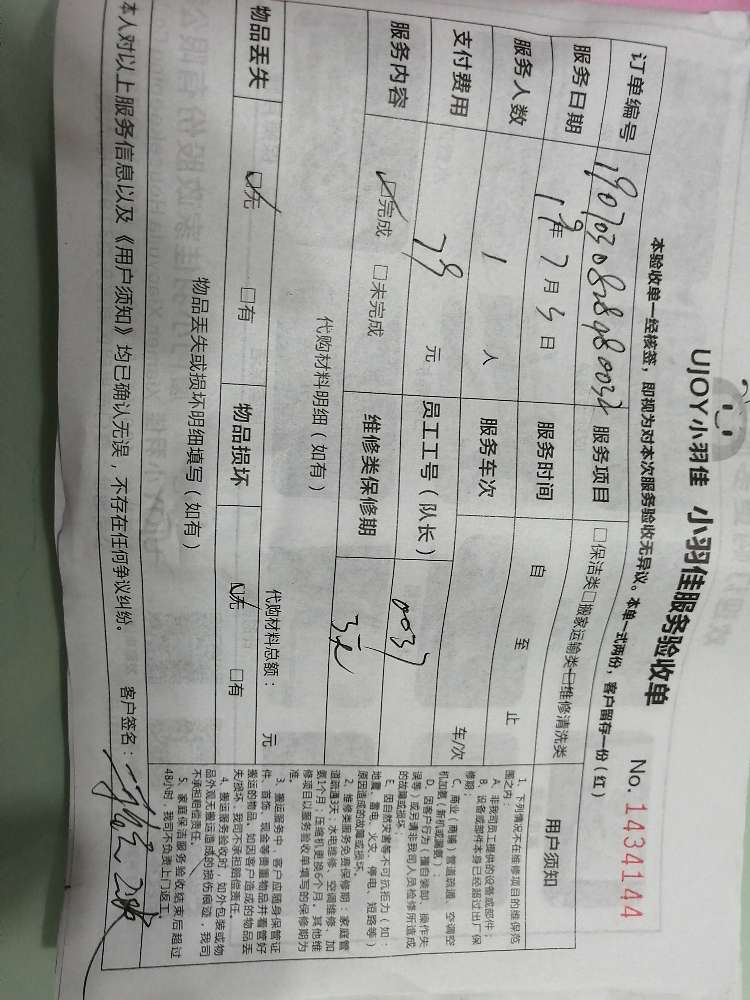 UJOY小羽佳 小羽佳服务验收单
No. 1434144
本验收单一经核签，即视为对本次服务验收无异议。本单一式两份，客户留存一份（红）
订单编号 服务项目 □保洁类□搬家运输类□维修清洗类
服务日期 19年7月3日 服务时间 自 至 止
服务人数 1 人 服务车次 车/次
支付费用 79 元 员工工号（队长） 0037
服务内容 ☑完成 □未完成 维修类保修期 3天
代购材料明细（如有） 代购材料总额： 元
物品丢失 ☑无 □有 物品损坏 ☑无 □有
物品丢失或损坏明细填写（如有）
本人对以上服务信息以及《用户须知》均已确认无误，不存在任何争议纠纷。 客户签名：
用户须知
1、下列情况不在维修项目的维保范
围之内：
A、非我司员工提供的设备或部件；
B、设备或部件本身已经超过出厂保
修期；
C、商业（商铺）管道疏通、空调空
机加氨（新机或漏氨）；
D、因客户行为（擅自装卸、操作失
误等）或另请非我司人员检修所造成
的故障或损坏；
E、因自然灾害等不可抗拒力（如：
地震、雷电、火灾、停电、短路等）
原因造成的故障或损坏。
2、维修类服务免费保修期：家庭管
道疏通3天、水电维修、空调维修、加
氨1个月、压缩机更换6个月，其他维
修项目以服务验收单填写的保修期为
准。
3、搬运服务中，客户应随身保管证
件、首饰、现金等贵重物品并看管好
搬运的物品，如因客户造成的物品丢
失/损坏，我司不承担赔偿责任。
4、搬运服务验收时，如外包装或物
品外观无搬运造成的损伤痕迹，我司
不承担赔偿责任。
5、家庭保洁服务验收结束后超过
48小时，我司不负责上门返工。